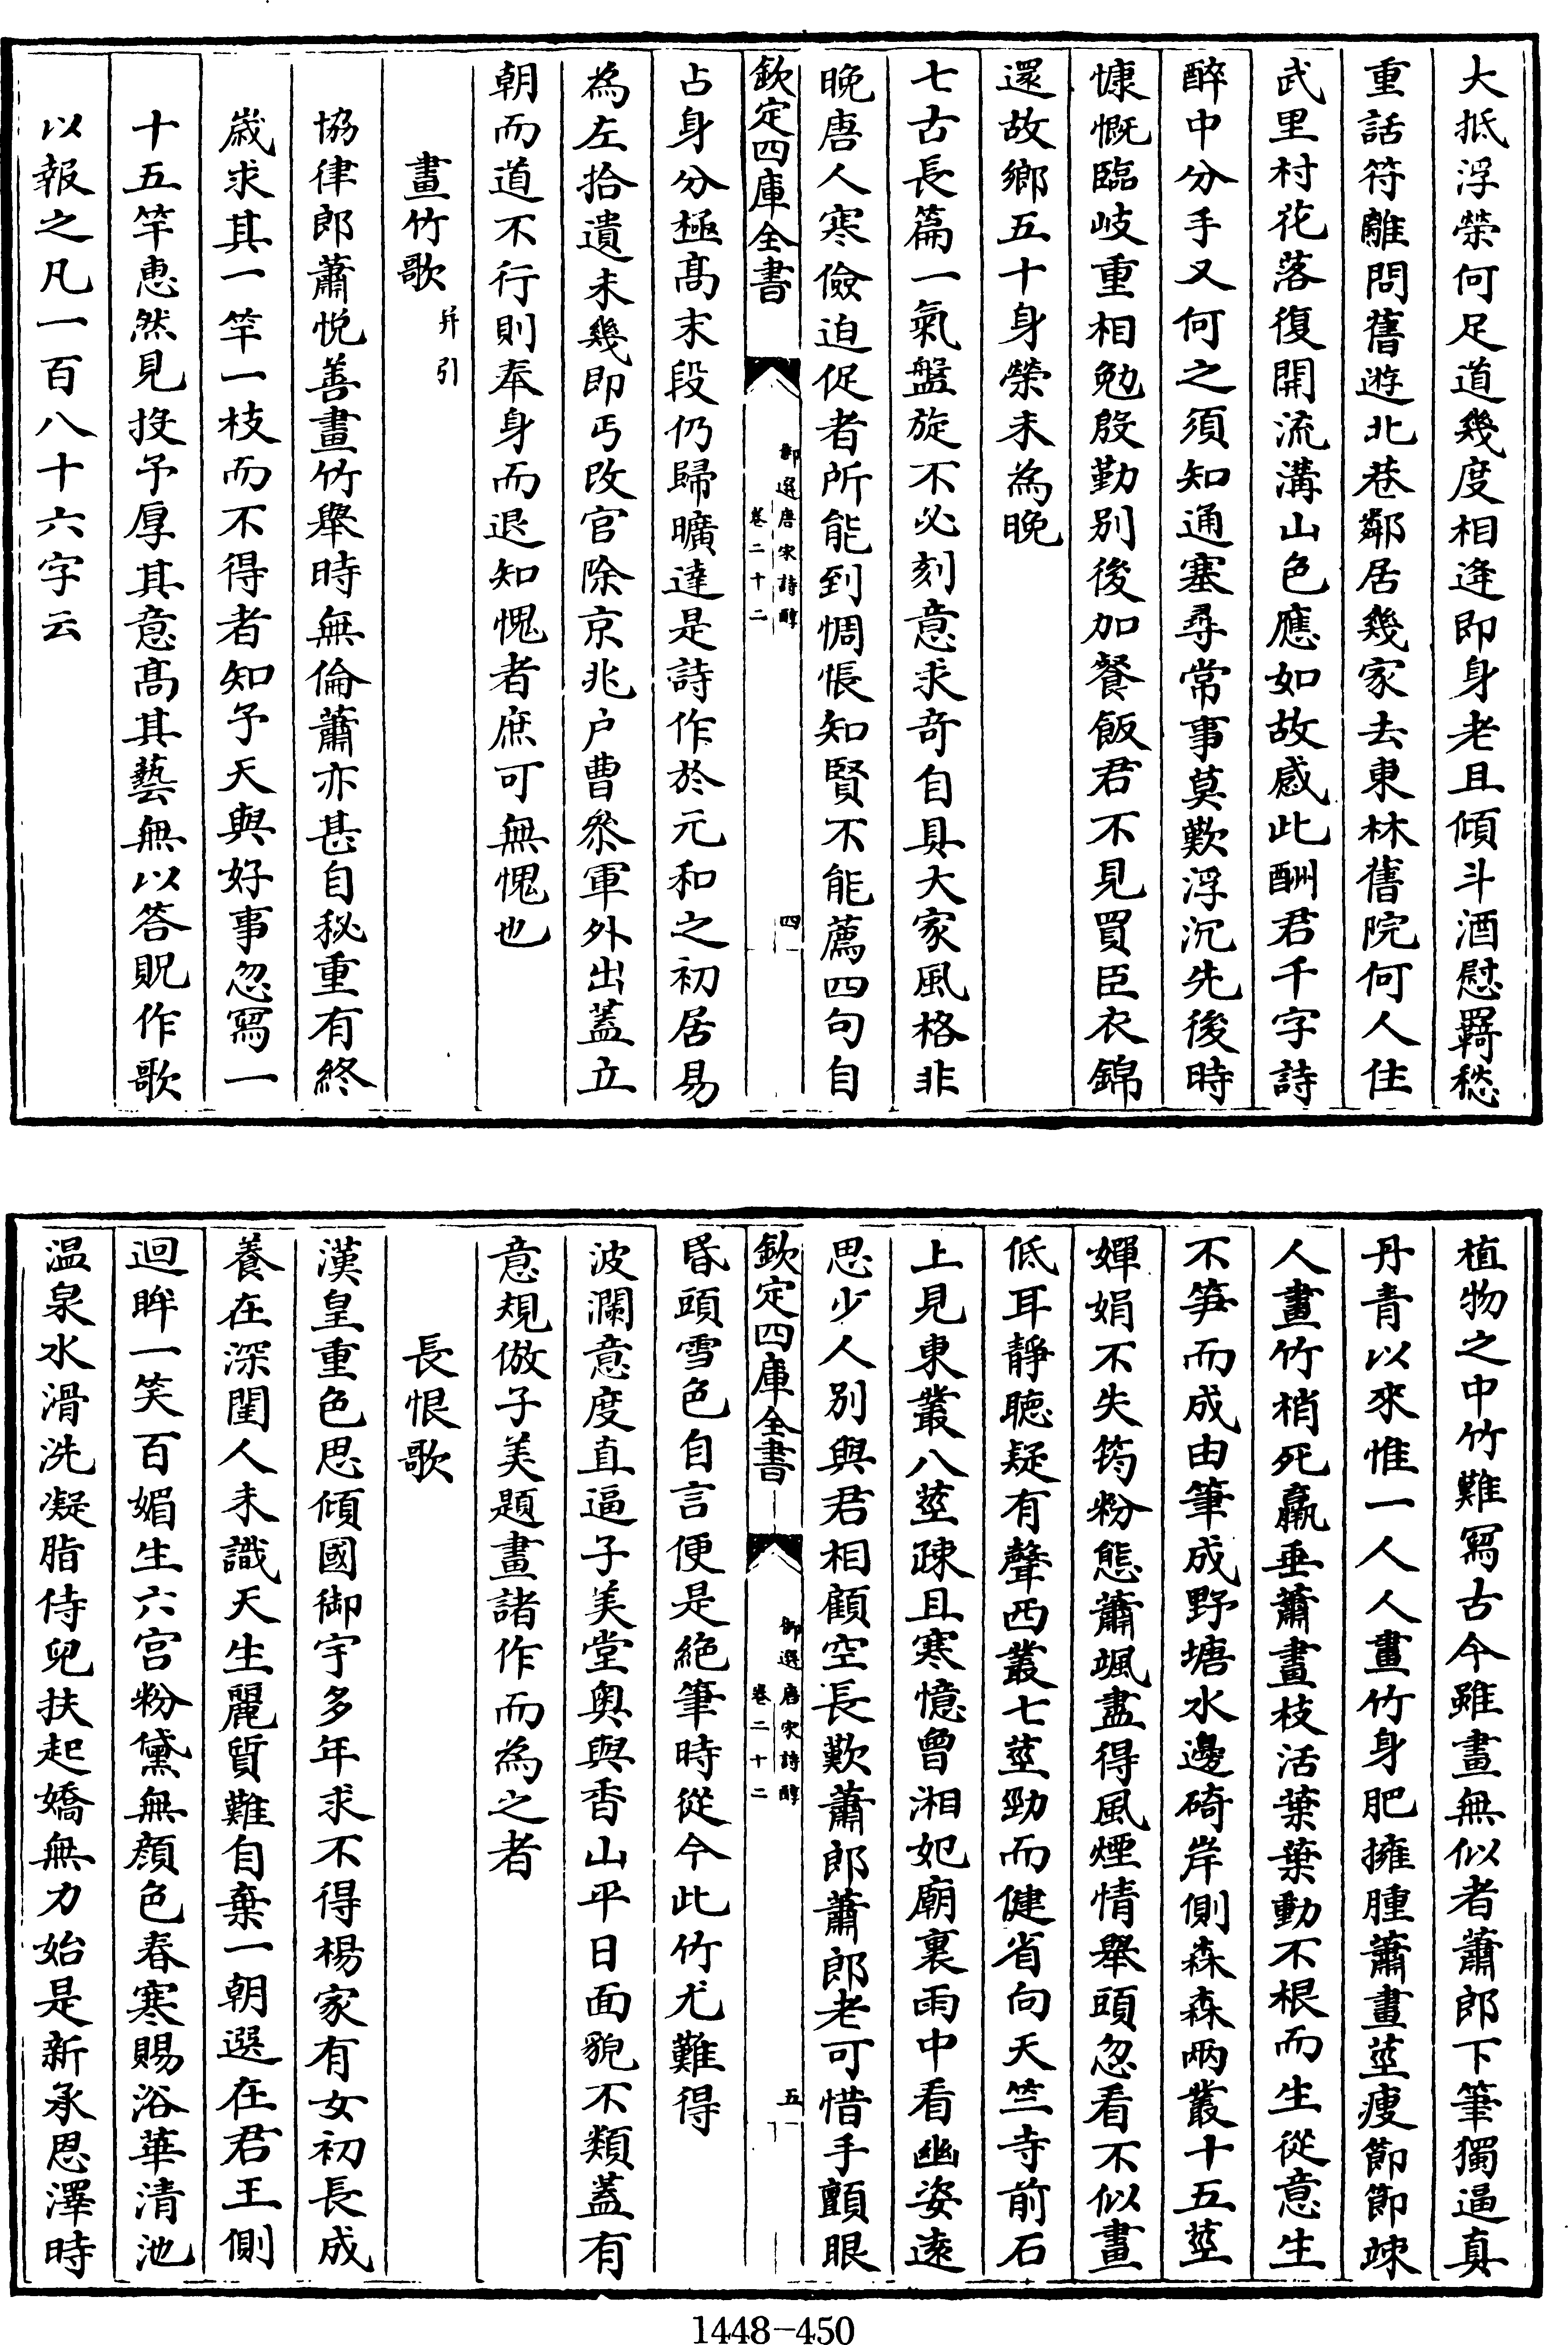 大抵浮榮何足道幾度相逢即身老且傾斗酒慰羇愁
重話符離問舊遊北巷鄰居幾家去東林舊院何人住
武里村花落復開流溝山色應如故感此酬君千字詩
醉中分手又何之須知通塞尋常事莫歎浮沉先後時
慷慨臨岐重相勉殷勤別後加餐飯君不見買臣衣錦
還故鄉五十身榮未為晚
七古長篇一氣盤旋不必刻意求奇自具大家風格非
晚唐人寒儉迫促者所能到惆悵知賢不能薦四句自
欽定四庫全書
御選唐宋詩醇
卷二十二
四
占身分極髙末段仍歸曠達是詩作於元和之初居易
為左拾遺未幾即丐改官除京兆户曹叅軍外出蓋立
朝而道不行則奉身而退知愧者庶可無愧也
畫竹歌 并引
協律郎蕭悦善畫竹舉時無倫蕭亦甚自秘重有終
嵗求其一竿一枝而不得者知予天與好事忽寫一
十五竿惠然見投予厚其意髙其藝無以答貺作歌
以報之凡一百八十六字云
植物之中竹難寫古今雖畫無似者蕭郎下筆獨逼真
丹青以來惟一人人畫竹身肥擁腫蕭畫莖瘦節節竦
人畫竹梢死羸垂蕭畫枝活葉葉動不根而生從意生
不笋而成由筆成野塘水邊碕岸側森森兩叢十五莖
嬋娟不失筠粉態蕭颯盡得風煙情舉頭忽看不似畫
低耳靜聴疑有聲西叢七莖勁而健省向天竺寺前石
上見東叢八莖疎且寒憶曾湘妃廟裏雨中看幽姿逺
思少人別與君相顧空長歎蕭郎蕭郎老可惜手顫眼
欽定四庫全書
御選唐宋詩醇
卷二十二
五
昏頭雪色自言便是絶筆時從今此竹尤難得
波瀾意度直逼子美堂奥與香山平日面貌不類蓋有
意規倣子美題畫諸作而為之者
長恨歌
漢皇重色思傾國御宇多年求不得楊家有女初長成
養在深閨人未識天生麗質難自棄一朝選在君王側
迴眸一笑百媚生六宫粉黛無顔色春寒賜浴華清池
温泉水滑洗凝脂侍兒扶起嬌無力始是新承恩澤時
1448-450